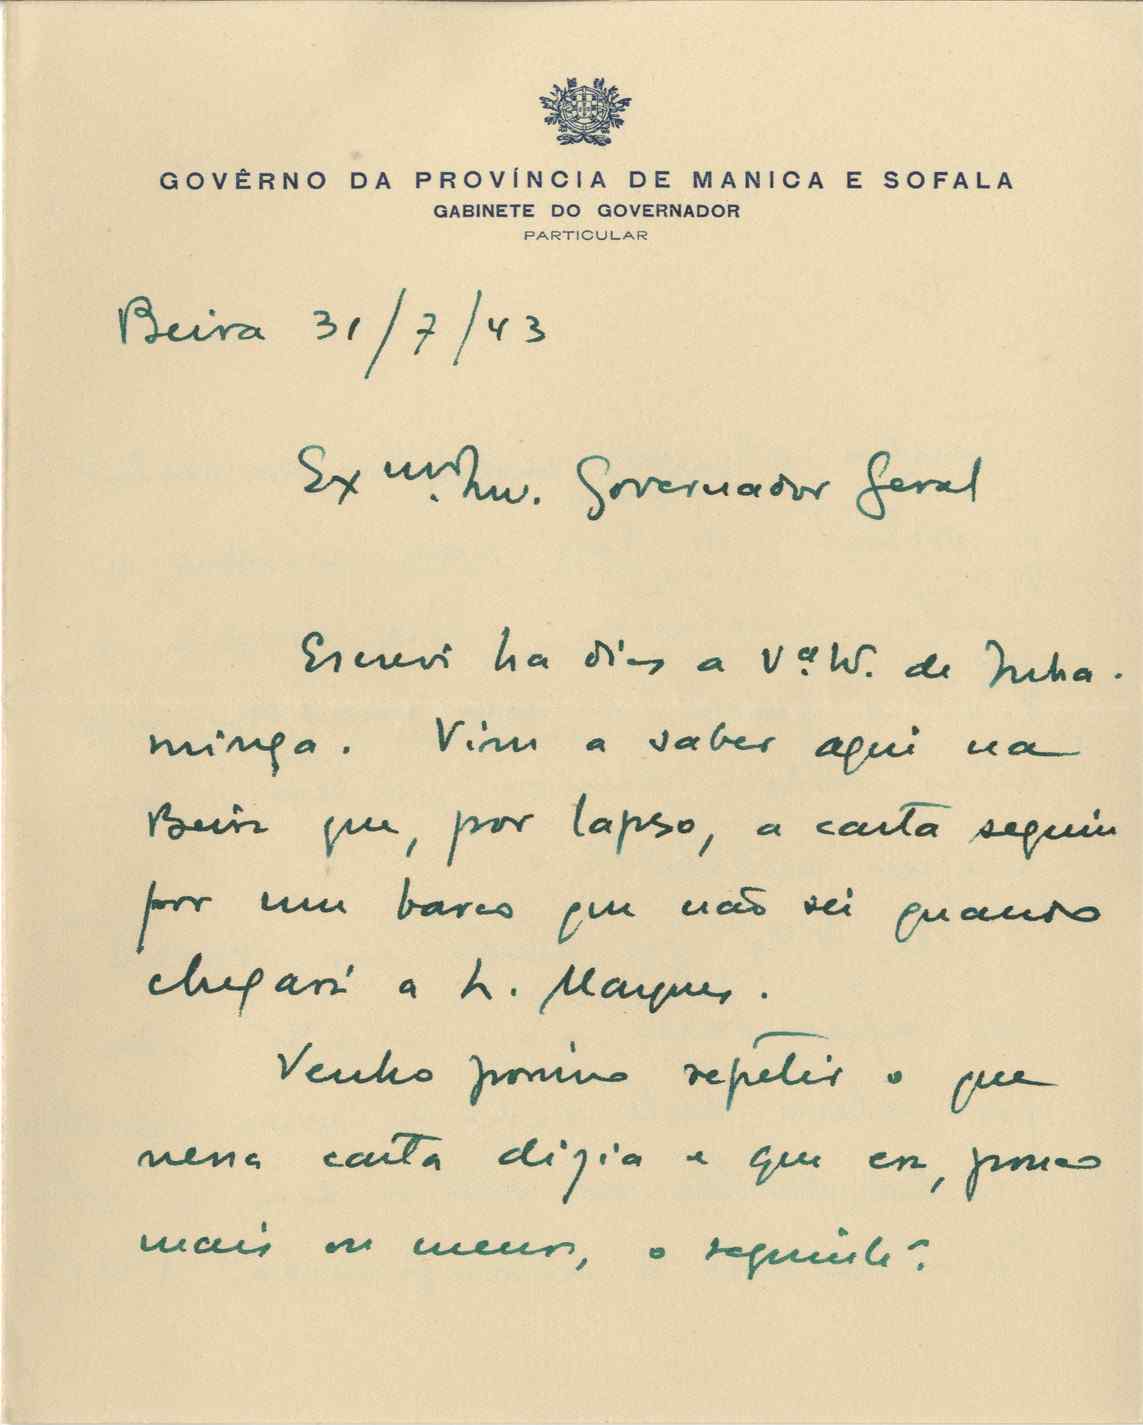 GOVÊRNO DA PROVÍNCIA DE MANICA E SOFALA
GABINETE DO GOVERNADOR
PARTICULAR
Beira 31/7/43
Exmo. Snr. Governador Geral
Escrevi ha dias a Vª. Ex. de Inha-
minga. Vim a saber aqui na
Beira que, por lapso, a carta seguiu
por um barco que não sei quando
chegará a L. Marques.
Venho por isso repetir o que
nessa carta dizia e que era, pouco
mais ou menos, o seguinte: